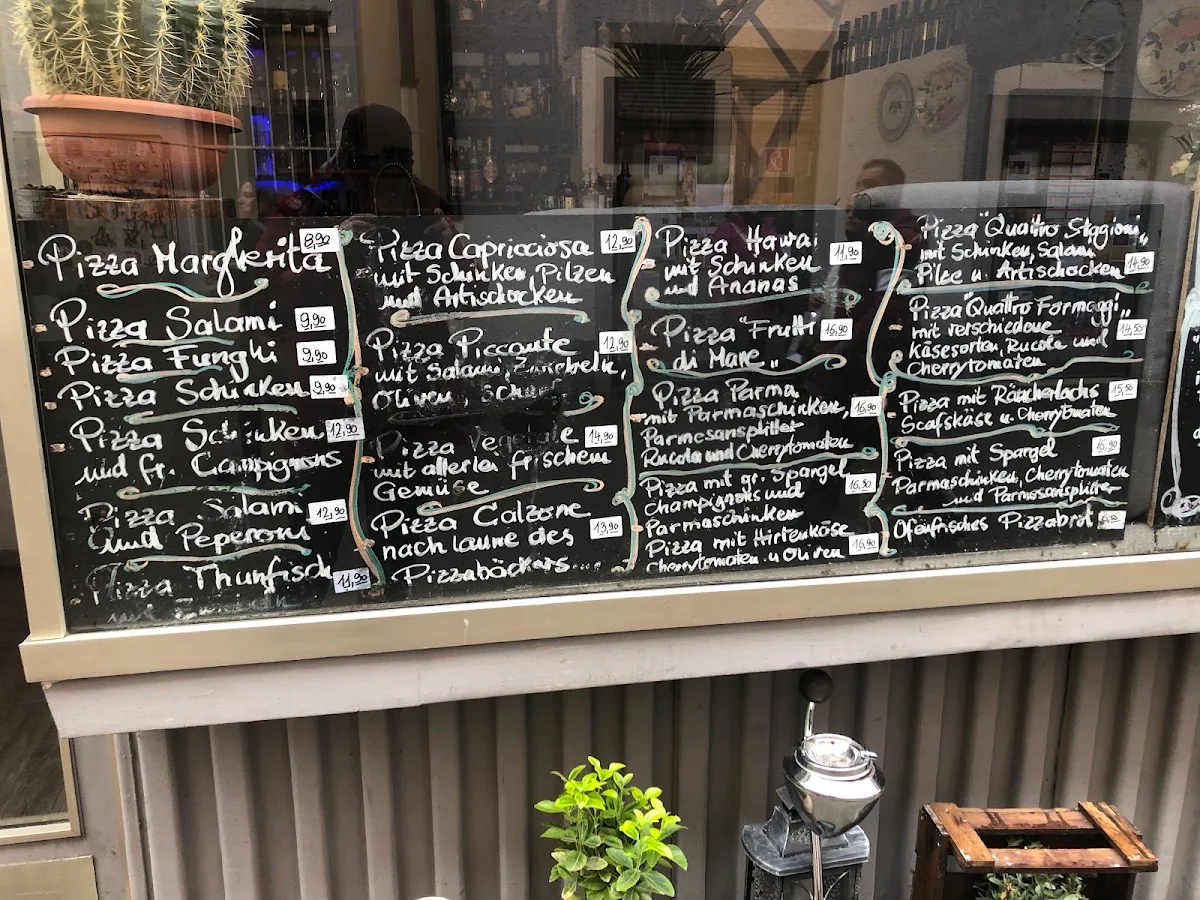 Pizza Margherita 8,90
Pizza Salami 9,90
Pizza Funghi 9,90
Pizza Schinken 9,90
Pizza Schinken 12,90
und fr. Campignons
Pizza Salami 12,90
und Peperoni
Pizza Thunfisch 11,90
Pizza Capricciosa 12,90
mit Schinken, Pilzen
und Artischocken
Pizza Piccante 12,90
mit Salami, Zwiebeln,
Oliven, Scharf
Pizza Vegetale 14,90
mit allerlei frischem
Gemüse
Pizza Calzone
nach laune des 13,90
Pizzabäckers...
Pizza Hawai 11,90
mit Schinken
und Ananas
Pizza "Frutti 16,90
di Mare"
Pizza Parma
mit Parmaschinken, 16,90
Parmesansplitter
Rucola und Cherrytomaten
Pizza mit gr. Spargel
Champignons und 16,90
Parmaschinken
Pizza mit Hirtenkäse
Cherrytomaten u. Oliven 16,90
Pizza "Quattro Stagioni"
mit Schinken, Salami
Pilze u. Artischocken 14,90
Pizza "Quattro Formaggi"
mit verschiedene 14,50
Käsesorten, Rucola und
Cherrytomaten
Pizza mit Räucherlachs 15,50
Scafskäse u. Cherrytomaten
Pizza mit Spargel 15,90
Parmaschinken, Cherrytomaten
und Parmesansplitter
Ofenfrisches Pizzabrot 6,50